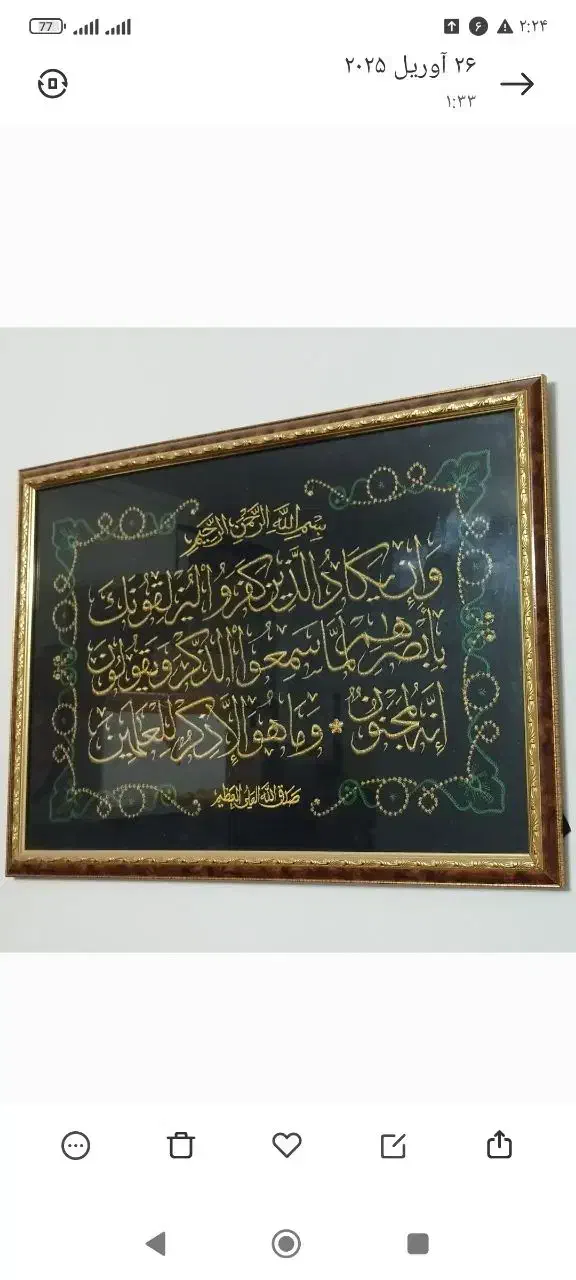 77
۶
۲:۲۴
۲۶ آوریل ۲۰۲۵
۱:۳۳
بسم الله الرحمن الرحيم
وإن يكاد الذين كفروا ليزلقونك
بأبصرهم لما سمعوا الذكر ويقولون
إنه لمجنون وما هو إلا ذكر للعلمين
صدق الله العلي العظيم